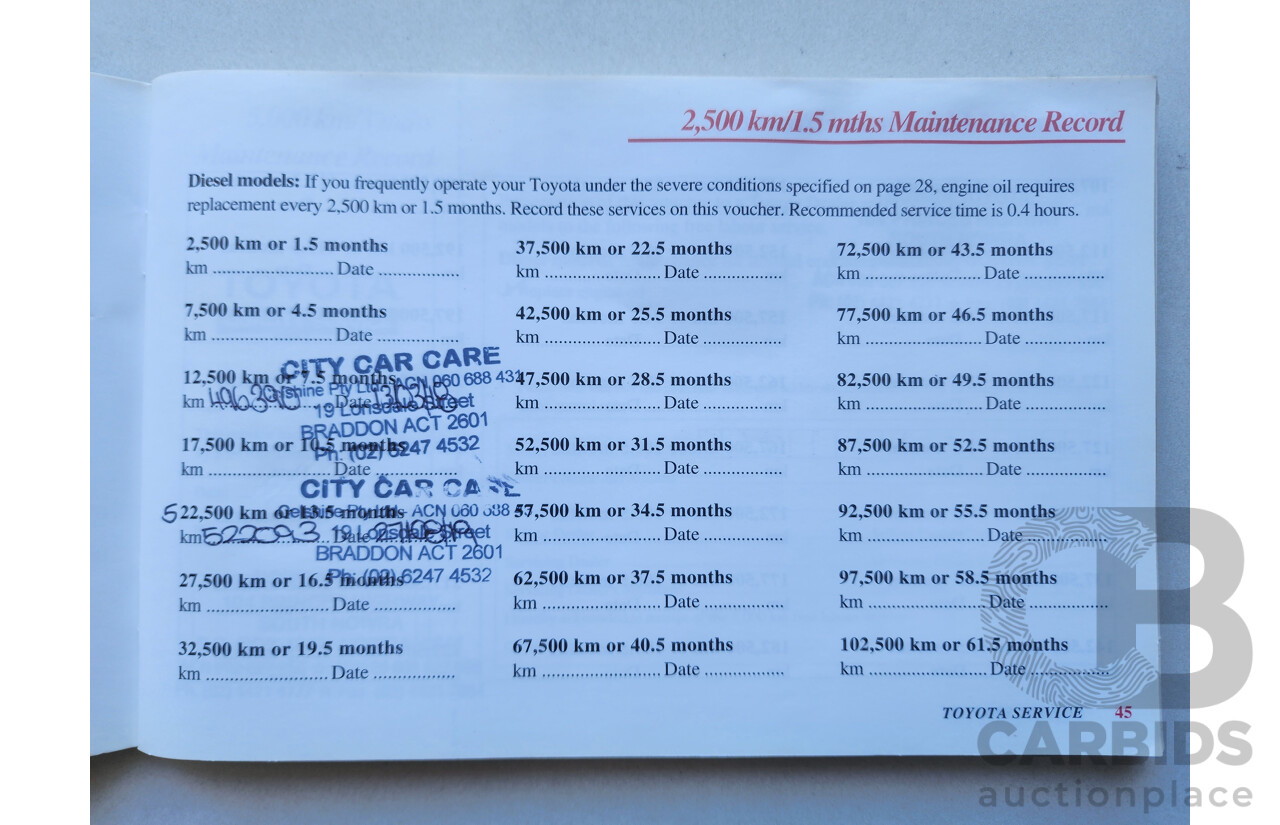 2,500 km/1.5 mths Maintenance Record
Diesel models: If you frequently operate your Toyota under the severe conditions specified on page 28, engine oil requires
replacement every 2,500 km or 1.5 months. Record these services on this voucher. Recommended service time is 0.4 hours.
2,500 km or 1.5 months
km ........................ Date ................
7,500 km or 4.5 months
km ........................ Date ................
12,500 km or 7.5 months
km 496390 Date
CITY CAR CARE
Pty Ltd - ACN 060 688 431
19 Lonsdale Street
BRADDON ACT 2601
Ph: (02) 6247 4532
17,500 km or 10.5 months
km ........................ Date ................
CITY CAR CARE
Pty Ltd - ACN 060 688
19 Lonsdale Street
BRADDON ACT 2601
Ph: (02) 6247 4532
5 22,500 km or 13.5 months
km 522093 Date
27,500 km or 16.5 months
km ........................ Date ................
32,500 km or 19.5 months
km ........................ Date ................
37,500 km or 22.5 months
km ........................ Date ................
42,500 km or 25.5 months
km ........................ Date ................
47,500 km or 28.5 months
km ........................ Date ................
52,500 km or 31.5 months
km ........................ Date ................
57,500 km or 34.5 months
km ........................ Date ................
62,500 km or 37.5 months
km ........................ Date ................
67,500 km or 40.5 months
km ........................ Date ................
72,500 km or 43.5 months
km ........................ Date ................
77,500 km or 46.5 months
km ........................ Date ................
82,500 km or 49.5 months
km ........................ Date ................
87,500 km or 52.5 months
km ........................ Date ................
92,500 km or 55.5 months
km ........................ Date ................
97,500 km or 58.5 months
km ........................ Date ................
102,500 km or 61.5 months
km ........................ Date ................
TOYOTA SERVICE 45
CARBIDS
auctionplace